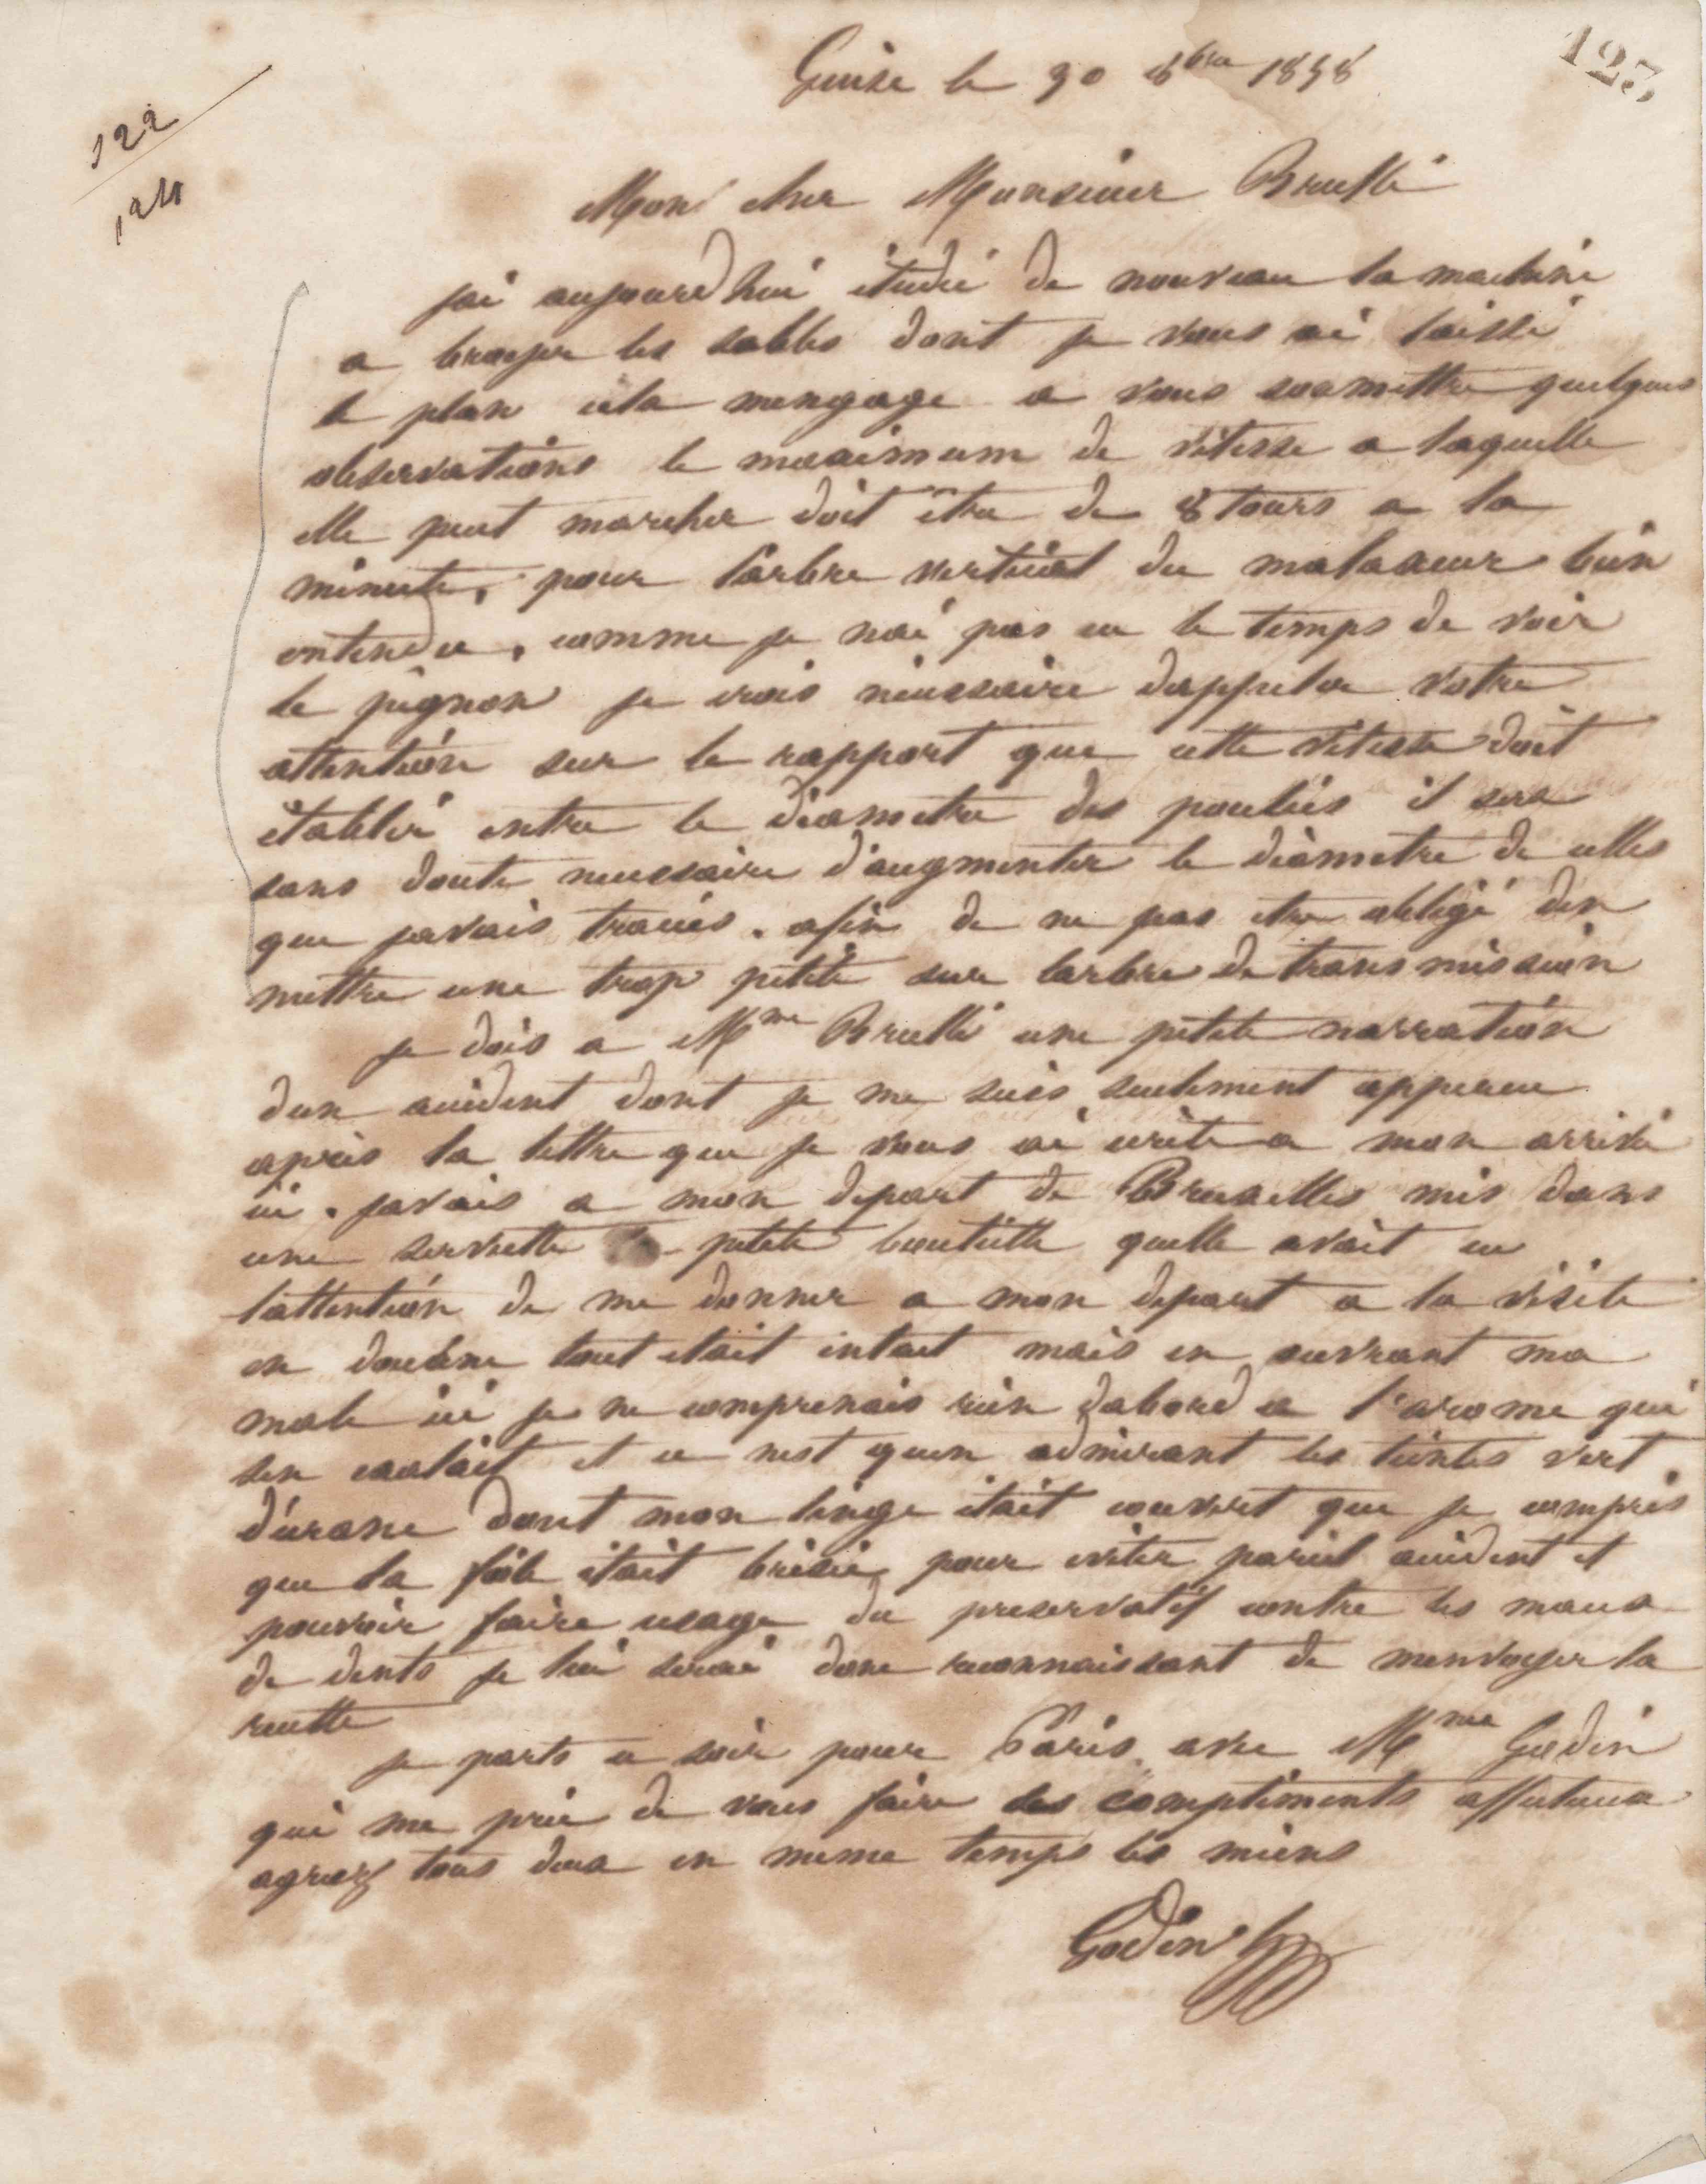 123
122
124
Guise le 30 8bre 1858
Mon cher Monsieur Brullé
jai aujourdhui étudié de nouveau la machine
a broyer les sables dont je vous ai laissé
le plan cela mengage a vous soumettre quelques
observations le maximum de vitesse a laquelle
elle peut marcher doit être de 8 tours a la
minute, pour l'arbre vertical du malaxeur bien
entendu, comme je nai pas eu le temps de voir
le pignon je crois nécessaire dappeler votre
attention sur le rapport que cette vitesse doit
établir entre le diametre des poulies il sera
sans doute necessaire d'augmenter le diametre de celles
que javais tracées. afin de ne pas etre obligé den
mettre une trop petite sur larbre de transmission
je dois a Mme Brullé une petite narration
dun accident dont je me suis seulement apperçu
après la lettre que je vous ai écrite a mon arrivé
ici. javais a mon depart de Bruxelles mis dans
une serviette petite bouteille quelle avait eu
lattention de me donner a mon depart a la visite
en douane tout etait intact mais en ouvrant ma
male ici je ne comprenais rien dabord a l'arome qui
sen exalait et ce nest quen admirant les teintes vert
d'urane dont mon linge était couvert que je compris
que la fiole était brisée, pour eviter pareil accident et
pouvoir faire usage du preservatif contre les maux
de dents je lui serai donc reconnaissant de menvoyer la
recette
je parts ce soir pour Paris avec Mme Godin
qui me prie de vous faire ses compliments affectueux
agreez tous deux en meme temps les miens
Godin